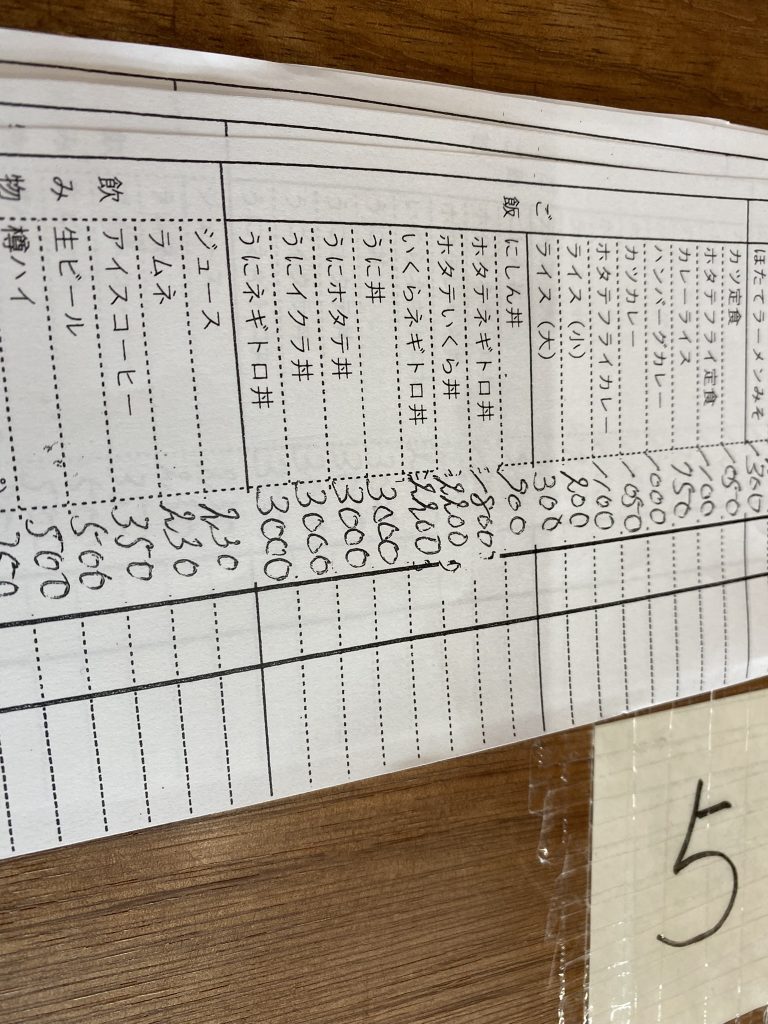 ほたてラーメンみそ 1300
カツ定食 1050
ホタテフライ定食 1100
カレーライス 750
ハンバーグカレー 1000
カツカレー 1050
ホタテフライカレー 1100
ライス（小） 200
ライス（大） 300
ご飯
にしん丼 900
ホタテネギトロ丼 1800
ホタテいくら丼 2200
いくらネギトロ丼 2200
うに丼 3000
うにホタテ丼 3000
うにイクラ丼 3000
うにネギトロ丼 3000
飲み物
ジュース 230
ラムネ 230
アイスコーヒー 350
生ビール 500
樽ハイ 500
5